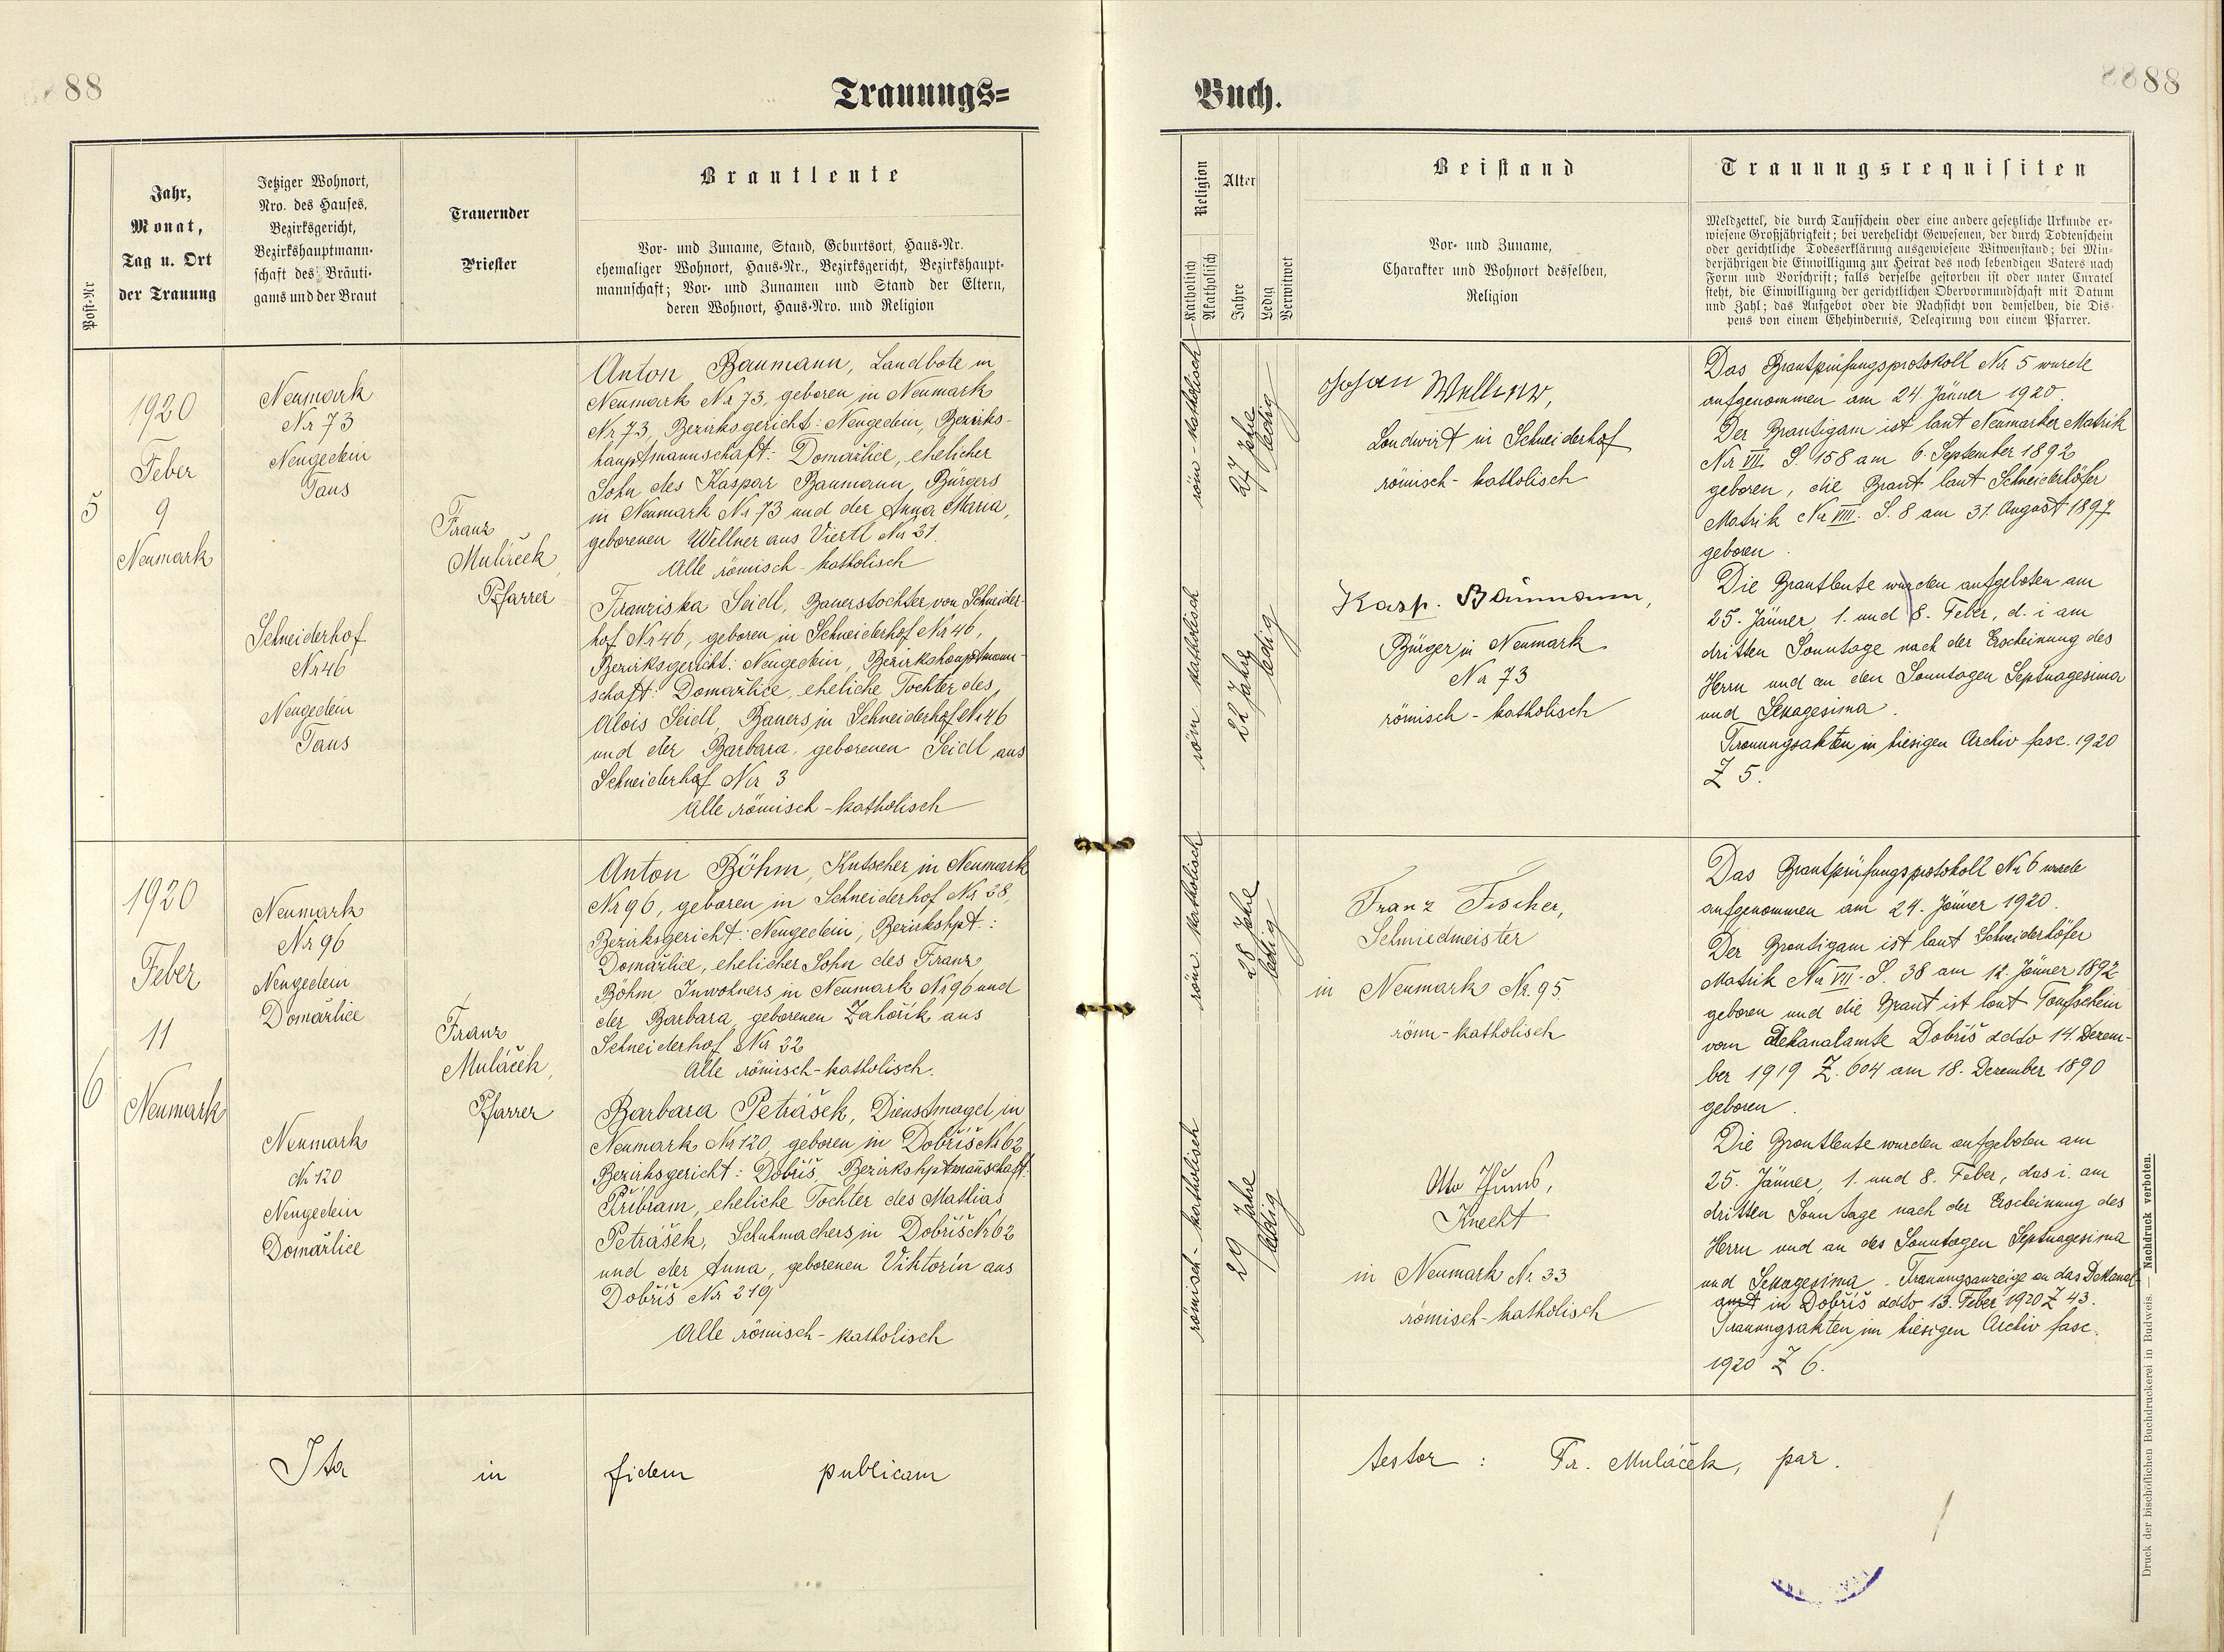 88
Trauungs=
Jahr,
Monat,
Tag u. Ort
der Trauung
Post-Nr
Jetziger Wohnort,
Nro. des Hauses,
Bezirksgericht,
Bezirkshauptmann-
schaft des Bräuti-
gams und der Braut
Trauernder
Priester
Brautleute
Vor- und Zuname, Stand, Geburtsort, Haus-Nr.
ehemaliger Wohnort, Haus-Nr., Bezirksgericht, Bezirkshaupt-
mannschaft; Vor- und Zunamen und Stand der Eltern,
deren Wohnort, Haus-Nro. und Religion
5
1920
Feber
9
Neumark
Neumark
Nr 73
Neugedein
Taus
Schneiderhof
Nr 46
Neugedein
Taus
Franz
Muláček,
Pfarrer
Anton Baumann, Landbote in
Neumark Nr 73, geboren in Neumark
Nr 73, Bezirksgericht: Neugedein, Bezirks-
hauptmannschaft: Domažlice, ehelicher
Sohn des Kaspar Baumann, Bürgers
in Neumark Nr 73 und der Anna Maria,
geborenen Wellner aus Viertl Nr 31.
Alle römisch-katholisch
Franziska Seidl, Bauerstochter von Schneider-
hof Nr 46, geboren in Schneiderhof Nr 46,
Bezirksgericht: Neugedein, Bezirkshauptmann-
schaft: Domažlice, eheliche Tochter des
Alois Seidl, Bauers in Schneiderhof Nr 46
und der Barbara, geborenen Seidl aus
Schneiderhof Nr 3
Alle römisch-katholisch
6
1920
Feber
11
Neumark
Neumark
Nr 96
Neugedein
Domažlice
Neumark
Nr 120
Neugedein
Domažlice
Franz
Muláček,
Pfarrer
Anton Böhm, Kutscher in Neumark
Nr 96, geboren in Schneiderhof Nr 38,
Bezirksgericht: Neugedein, Bezirkshpt.:
Domažlice, ehelicher Sohn des Franz
Böhm Inwohners in Neumark Nr 96 und
der Barbara, geborenen Zahořík aus
Schneiderhof Nr 32
Alle römisch-katholisch.
Barbara Petrášek, Dienstmagd in
Neumark Nr 120, geboren in Dobříš Nr 62
Bezirksgericht: Dobříš, Bezirkshptmanschaft:
Příbram, eheliche Tochter des Mathias
Petrášek, Schuhmachers in Dobříš Nr 62
und der Anna, geborenen Viktorin aus
Dobříš Nr 219
Alle römisch-katholisch
Ita in fidem publicam
Buch.
88
Religion
Katholisch
Akatholisch
Alter
Jahre
Ledig
Verwitwet
Beistand
Vor- und Zuname,
Charakter und Wohnort desselben,
Religion
Trauungsrequisiten
Meldzettel, die durch Taufschein oder eine andere gesetzliche Urkunde er-
wiesene Großjährigkeit; bei verehelicht Gewesenen, der durch Todtenschein
oder gerichtliche Todeserklärung ausgewiesene Witwenstand; bei Min-
derjährigen die Einwilligung zur Heirat des noch lebendigen Vaters nach
Form und Vorschrift; falls derselbe gestorben ist oder unter Curatel
steht, die Einwilligung der gerichtlichen Obervormundschaft mit Datum
und Zahl; das Aufgebot oder die Nachsicht von demselben, die Dis-
pens von einem Ehehindernis, Delegirung von einem Pfarrer.
röm-katholisch
27 Jahre
ledig
röm. katholisch
22 Jahre
ledig
Johan Wellner,
Landwirt in Schneiderhof
römisch-katholisch
Kasp. Baumann,
Bürger in Neumark
Nr 73
römisch-katholisch
Das Brautprüfungsprotokoll Nr 5 wurde
aufgenommen am 24. Jänner 1920.
Der Bräutigam ist laut Neumarker Matrik
Nr VII. S. 158 am 6. September 1892
geboren, die Braut laut Schneiderhöfer
Matrik Nr VIII. S. 8 am 31. August 1897
geboren.
Die Brautleute wurden aufgeboten am
25. Jänner, 1. und 8. Feber, d. i am
dritten Sonntage nach der Erscheinung des
Herrn und an den Sonntagen Septuagesima
und Sexagesima.
Trauungsakten in hiesigen Archiv fasc. 1920
Z 5.
röm. katholisch
28 Jahre
ledig
römisch-katholisch
29 Jahre
ledig
Franz Fischer,
Schmiedmeister
in Neumark Nr. 95.
röm-katholisch
Otto
Knecht
in Neumark Nr 33
römisch-katholisch
Das Brautprüfungsprotokoll Nr 6 wurde
aufgenommen am 24. Jänner 1920.
Der Bräutigam ist laut Schneiderhöfer
Matrik Nr VII. S. 38 am 12. Jänner 1892
geboren und die Braut ist laut Taufschein
vom Dekanalamte Dobříš ddto 14. Dezem-
ber 1919 Z. 604 am 18. Dezember 1890
geboren.
Die Brautleute wurden aufgeboten am
25. Jänner, 1. und 8. Feber, das i. am
dritten Sonntage nach der Erscheinung des
Herrn und an des Sonntagen Septuagesima
und Sexagesima. Trauungsanzeige an das Dekanal-
amt in Dobříš ddto 13. Feber 1920 Z 43.
Trauungsakten im hiesigen Archiv fasc.
1920 Z 6.
testor: Fr. Muláček, par.
Druck der bischöflichen Buchdruckerei in Budweis. — Nachdruck verboten.